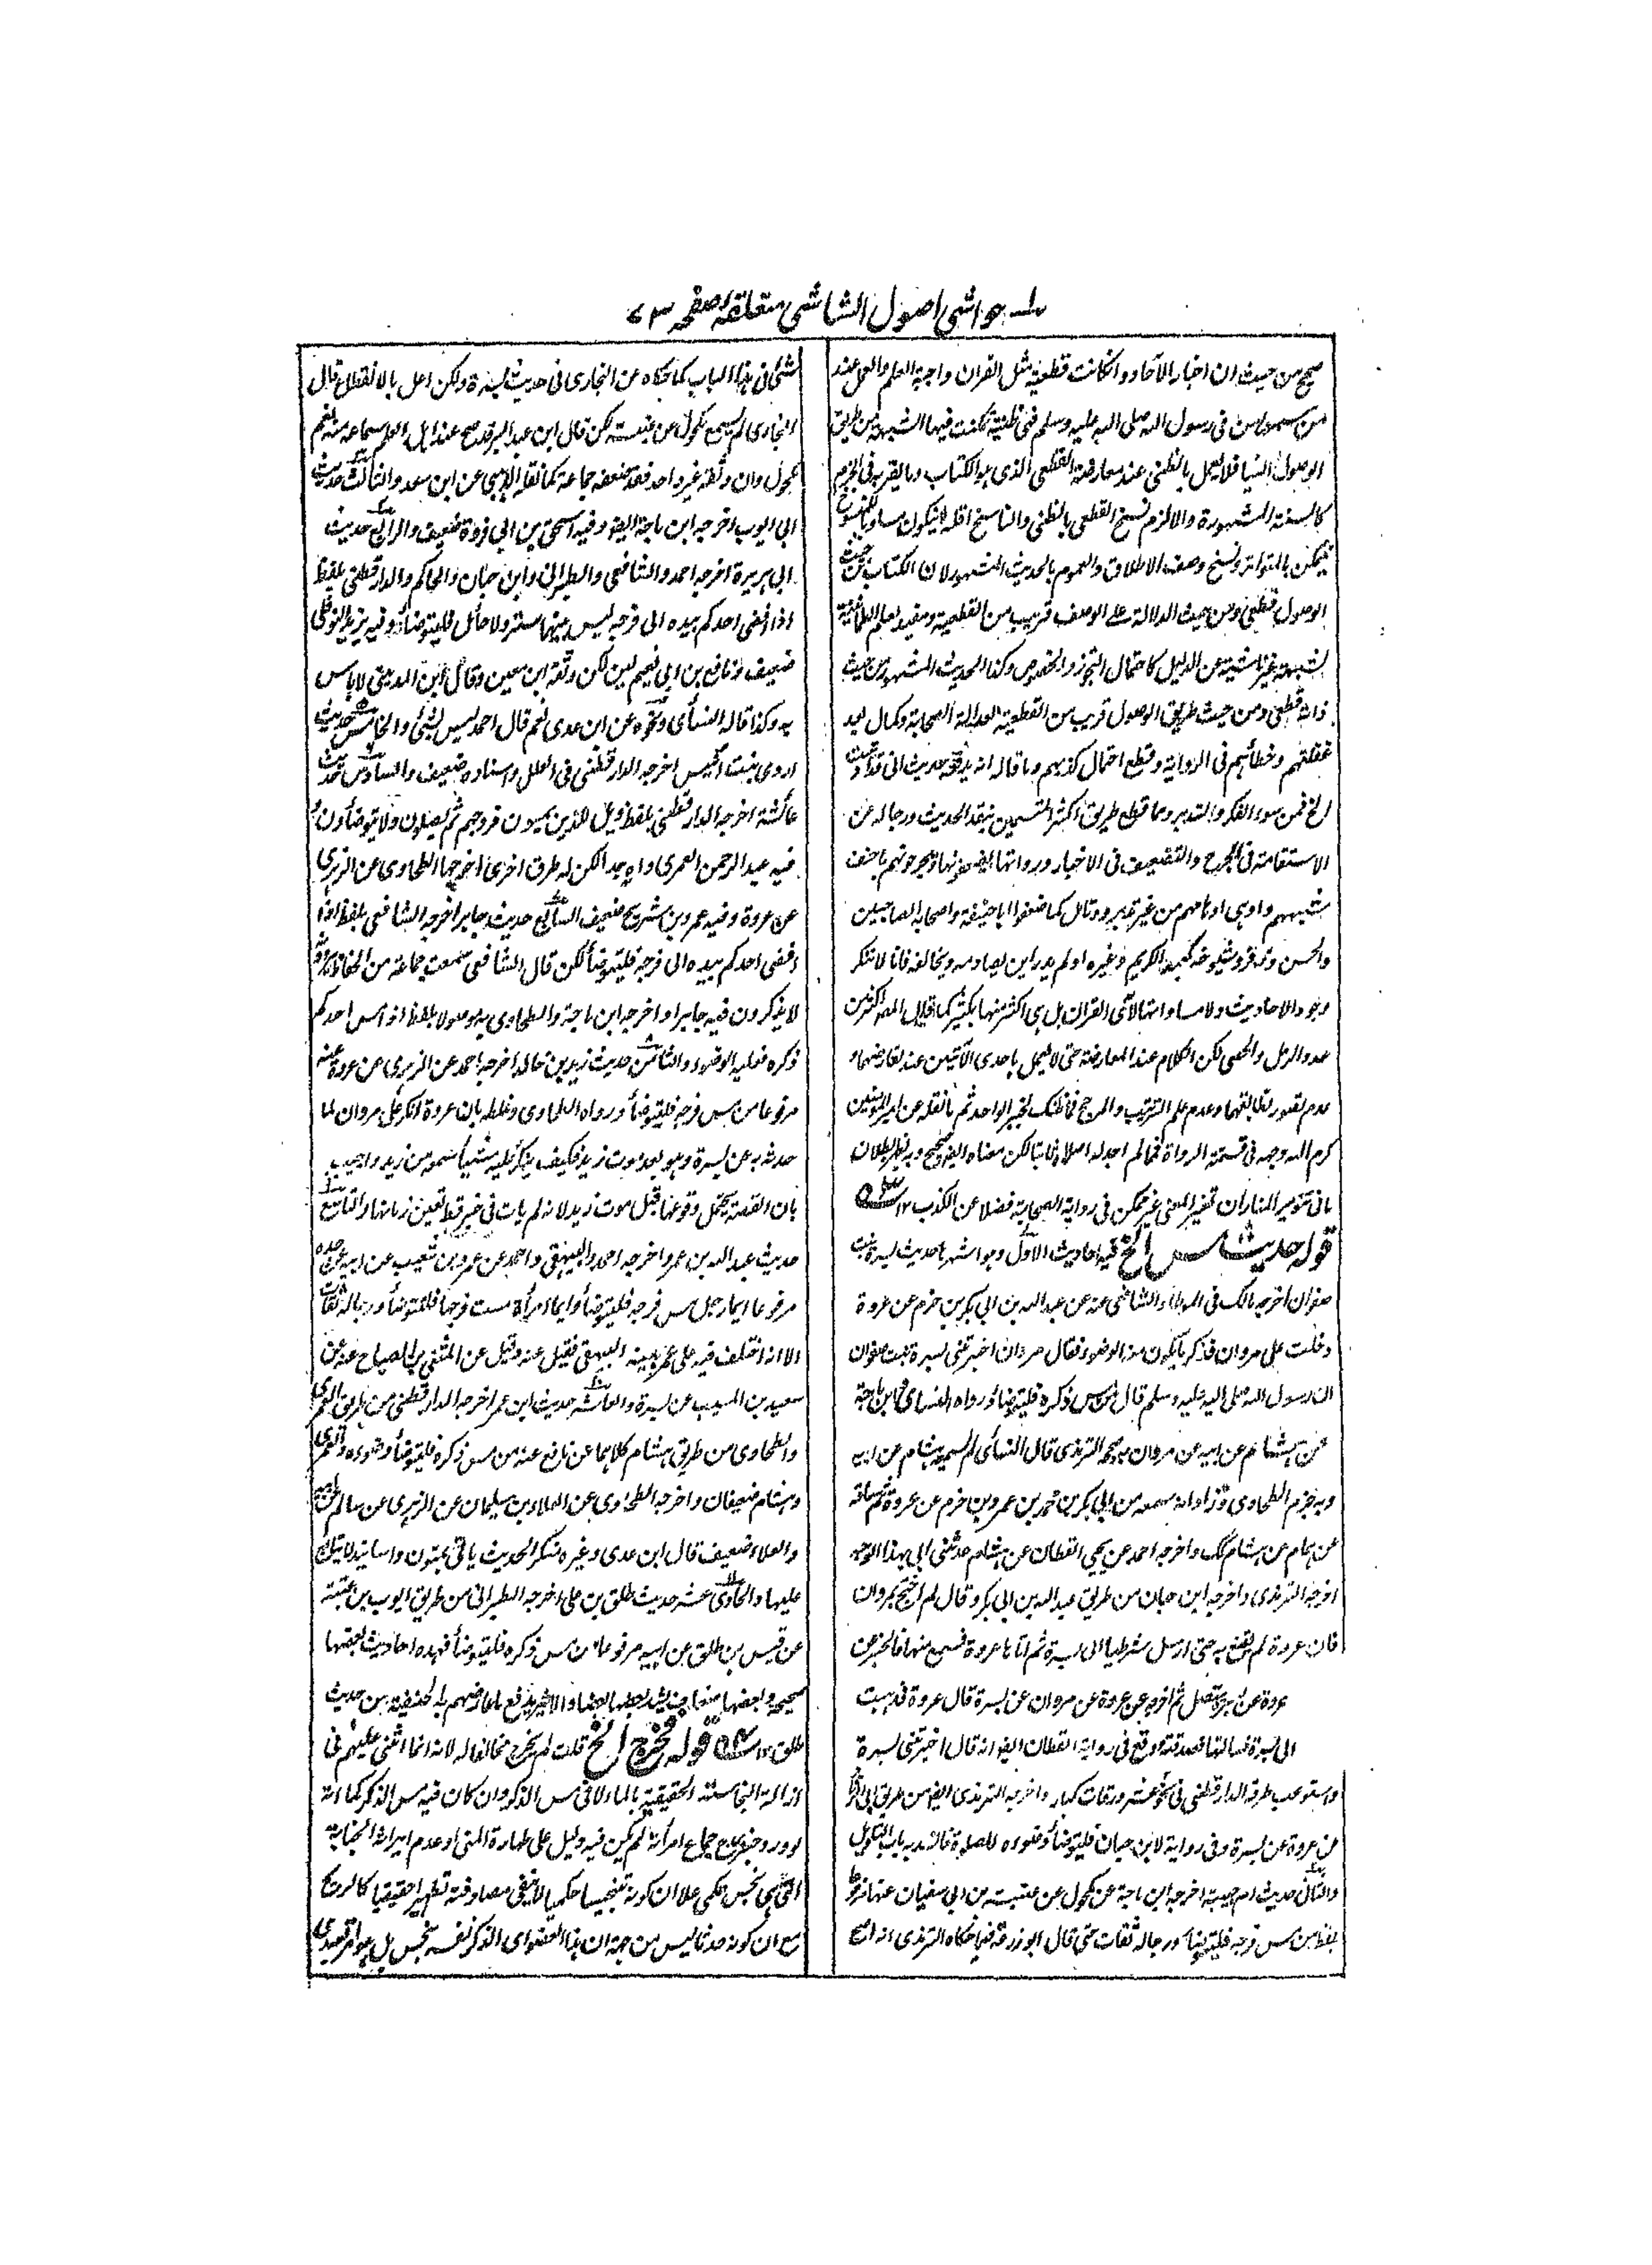 حواشی اصول الشاشی متعلقہ صفحہ ۷۳
صحيح من حيث ان اخبار الآحاد وانكانت قطعية مثل القرآن واجبة العلم والعمل عند
من سمعها من فى رسول الله صلى الله عليه وسلم فهى ظنية تمكنت فيها الشبهة من طريق
الوصول الينا فلا يعمل بالظنى عند معارضة القطعى الذى هو الكتاب وما يقربه فى الجزم
كالسنة المشهورة والا لزم نسخ القطعى بالظنى والناسخ اقله ان يكون مساويا للمنسوخ
فيمكن بالمتواتر نسخ وصف الاطلاق والعموم بالحديث المشهور لان الكتاب من حيث
الوصول قطعى ومن حيث الدلالة على الوصف قريب من القطعية ومفيد لعلم الطمانية
لشبهة غير ناشية عن الدليل كاحتمال التجوز والخصوص وكذا الحديث المشهور من حيث
ذاته قطعى ومن حيث طريق الوصول قريب من القطعية لعدالة الصحابة وكمال بعد
غفلتهم وخطائهم فى الرواية وقطع احتمال كذبهم وما قاله انه يدفعه حديث انى قد اوتيت
الخ فمن سوء الفكر والتدبر ومما قطع طريق اكثر المتسمين بنقد الحديث ورجاله عن
الاستقامة فى الجرح والتضعيف فى الاخبار ورواتها يضعفونها ويجرحونهم باضعف
شبههم واوهى اوهامهم من غير تدبر وتأمل كما ضعفوا ابا حنيفة واصحابه الصاحبين
والحسن وزفر وشيوخه كعبد الكريم وغيره او لم يدر اين يصادمه ويخالفه فانا لا ننكر
وجود الاحاديث ولا مساواتها لآى القرآن بل هى اكثر منها بكثير كما قال اكثر من
عدد الرمل والحصى لكن الكلام عند المعارضة حتى لا يعمل باحدى الآيتين عند تعارضهما و
عدم تصور تطابقهما وعدم علم الترتيب والمرجح فما ظنك بخبر الواحد ثم ما نقله عن امير المؤمنين
كرم الله وجهه فى قسمة الرواة فمما لم اجد له اصلا ثابتا لكن معناه ايضا صحيح وبه يظهر بطلان
ما فى تنوير المنار ان تغير المعنى غير ممكن فى رواية الصحابة فضلا عن الكذب ۱۲
قوله حديث مس الخ فيه احاديث الاول وهو اشهرها حديث بسرة بنت
صفوان اخرجه مالك فى الموطأ والشافعى عنه عن عبد الله بن ابى بكر بن حزم عن عروة
دخلت على مروان فذكر ما يكون منه الوضوء فقال مروان اخبرتنى بسرة بنت صفوان
ان رسول الله صلى الله عليه وسلم قال من مس ذكره فليتوضأ ورواه النسائى وابن ماجة
عن هشام عن ابيه عن مروان به وصححه الترمذى قال النسائى لم يسمع هشام عن ابيه
وبه جزم الطحاوى وزاد انه سمعه من ابى بكر بن محمد بن عمرو بن حزم عن عروة ثم ساقه
عن همام عن هشام كك واخرجه احمد عن يحيى القطان عن هشام حدثنى ابى بهذا الوجه
اخرجه الترمذى واخرجه ابن حبان من طريق عبد الله بن ابى بكر وقال لم احتج بمروان
فان عروة لم يقنع به حتى ارسل شرطيا الى بسرة ثم اتاها عروة فسمع منها فالخبر عن
عروة عن بسرة متصل ثم اخرجه عن عروة عن مروان عن بسرة قال عروة فذهبت
الى بسرة فسألتها فصدقته ووقع فى رواية القطان ايضا انه قال اخبرتنى بسرة
واستوعب طرقه الدارقطنى فى نحو عشر ورقات كبار واخرجه الترمذى ايضا من طريق ابى الزناد
عن عروة عن بسرة وفى رواية لابن حبان فليتوضأ وضوءه للصلوة
والثانى حديث ام حبيبة اخرجه ابن ماجة عن مكحول عن عنبسة بن ابى سفيان عنها مرفوعا
بلفظ من مس فرجه فليتوضأ ورجاله ثقات حتى قال ابو زرعة فيما حكاه الترمذى انه اصح
شئ فى هذا الباب كما حكاه عن البخارى فى حديث بسرة ولكن اعل بالانقطاع قال
البخارى لم يسمع مكحول عن عنبسة لكن قال ابن عبد البر قد صح عند اهل العلم سماعه منه نعم
مكحول وان وثقه غير واحد فقد ضعفه جماعة كما نقله الذهبى عن ابن سعد والثالث حديث
ابى ايوب اخرجه ابن ماجة ايضا وفيه اسحق بن ابى فروة ضعيف والرابع حديث
ابى هريرة اخرجه احمد والشافعى والطبرانى وابن حبان والحاكم والدارقطنى بلفظ
اذا افضى احدكم بيده الى فرجه ليس بينهما ستر ولا حائل فليتوضأ وفيه يزيد النوفلى
ضعيف ونافع بن ابى نعيم لين لكن وثقه ابن معين وقال ابن المدينى لا باس
به وكذا قاله النسائى ونحوه عن ابن عدى نعم قال احمد ليس بشئ والخامس حديث
اروى بنت انيس اخرجه الدارقطنى فى العلل واسناده ضعيف والسادس حديث
عائشة اخرجه الدارقطنى بلفظ ويل للذين يمسون فروجهم ثم يصلون ولا يتوضأون
فيه عبد الرحمن العمرى واه جدا لكن له طرق اخرى اخرجها الطحاوى عن الزهرى
عن عروة وفيه عمرو بن شريح ضعيف السابع حديث جابر اخرجه الشافعى بلفظ اذا
افضى احدكم بيده الى فرجه فليتوضأ لكن قال الشافعى سمعت جماعة من الحفاظ يروونه
لا يذكرون فيه جابرا واخرجه ابن ماجة والطحاوى به موصولا بلفظ اذا مس احدكم
ذكره فعليه الوضوء والثامن حديث زيد بن خالد اخرجه احمد عن الزهرى عن عروة عنه
مرفوعا من مس فرجه فليتوضأ ورواه الطحاوى وغلطه بان عروة انكر على مروان لما
حدثه به عن بسرة وهو بعد موت زيد فكيف ينكر عليه شيئا سمعه من زيد واجيب
بان القصة يحتمل وقوعها قبل موت زيد لانه لم يات فى خبر قط تعين زمانها والتاسع
حديث عبد الله بن عمرو اخرجه احمد والبيهقى واحمد عن عمرو بن شعيب عن ابيه عن جده
مرفوعا ايما رجل مس فرجه فليتوضأ وايما امرأة مست فرجها فلتتوضأ ورجاله ثقات
الا انه اختلف فيه على عمرو بينه البيهقى فقيل عنه وقيل عن المثنى بن الصباح عنه عن
سعيد بن المسيب عن بسرة والعاشر حديث ابن عمر اخرجه الدارقطنى من طريق العمرى
والطحاوى من طريق هشام كلاهما عن نافع عنه من مس ذكره فليتوضأ وضوءه والعمرى
وهشام ضعيفان واخرجه الطحاوى عن العلاء بن سليمان عن الزهرى عن سالم عن ابيه
والعلاء ضعيف قال ابن عدى وغيره منكر الحديث ياتى بمتون واسانيد لا يتابع
عليها والحادى عشر حديث طلق بن على اخرجه الطبرانى من طريق ايوب بن عتبة
عن قيس بن طلق عن ابيه مرفوعا من مس ذكره فليتوضأ فهذه احاديث بعضها
صحيح وبعضها ضعاف يشد بعضها بعضا والاخير يدفع ما عارضهم به الحنفية من حديث
طلق ۱۲ قوله فخرج الخ قلت لم يخرج مخالفا له لانه انما اثنى عليهم فى
ازالة النجاسة الحقيقية بالماء لا فى مس الذكر وان كان فيه مس الذكر كما انه
لو ورد خبر بمدح جماع امرأته لم يكن فيه دليل على طهارة المنى او عدم ايراثه الجنابة
التى هى نجس حكمى علا ان كونه تنجيسا حكميا لا ينفى مصادفته تطهيرا حقيقيا
مع ان كونه حدثا ليس من جهة ان هذا العضو اى الذكر نفسه نجس بل هو امر تعبدى